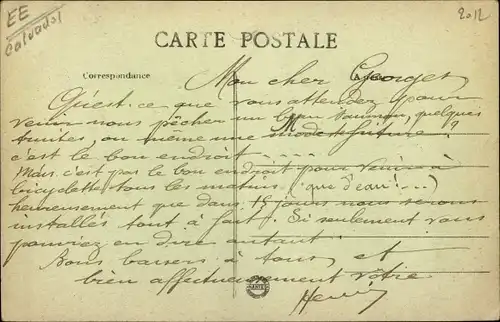 EE
Calvados
2012
CARTE POSTALE
Correspondance
Mon cher Georges,
Qu'est-ce que vous attendez pour
venir nous pêcher un saumon, quelques
truites ou même une modeste friture ?
c'est le bon endroit
Mais c'est pas le bon endroit pour venir à
bicyclette tous les matins (que d'eau!...)
heureusement que dans 15 jours nous serons
installés tout à fait. Si seulement vous
pouviez en dire autant.
Bons baisers à tous, et
bien affectueusement vôtre
Hervé